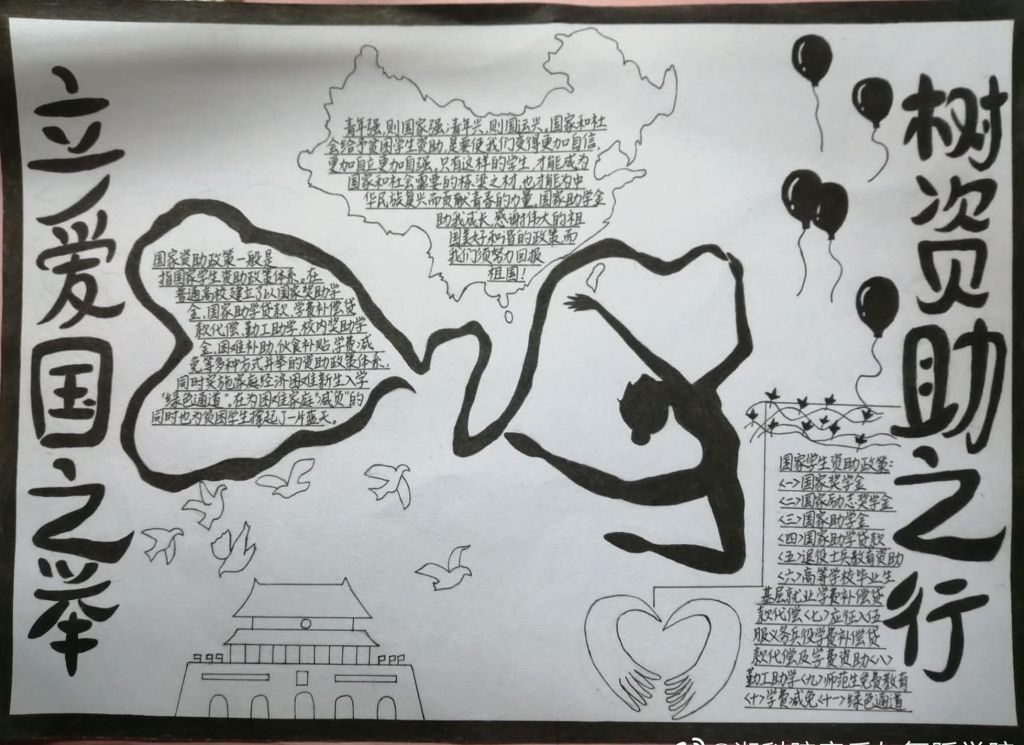 立爱国之举
树资助之行
青年强,则国家强;青年兴,则国运兴。国家和社
会给予贫困学生资助,是要使我们变得更加自信,
更加自立更加自强。只有这样的学生,才能成为
国家和社会需要的栋梁之材,也才能为中
华民族复兴而贡献青春的力量。国家助学金
助我成长,感谢伟大的祖
国美好和谐的政策,而
我们须努力回报
祖国!
国家资助政策一般是
指国家学生资助政策体系。在
普通高校建立了以国家奖助学
金、国家助学贷款、学费补偿贷
款代偿、勤工助学、校内奖助学
金、困难补助、伙食补贴、学费减
免等多种方式并举的资助政策体系,
同时实施家庭经济困难新生入学
“绿色通道”,在为困难家庭“减负”的
同时也为贫困学生撑起了一片蓝天。
国家学生资助政策:
<一>国家奖学金
<二>国家励志奖学金
<三>国家助学金
<四>国家助学贷款
<五>退役士兵教育资助
<六>高等学校毕业生
基层就业学费补偿贷
款代偿<七>应征入伍
服义务兵役学费补偿贷
款代偿及学费资助<八>
勤工助学<九>师范生免费教育
<十>学费减免<十一>绿色通道